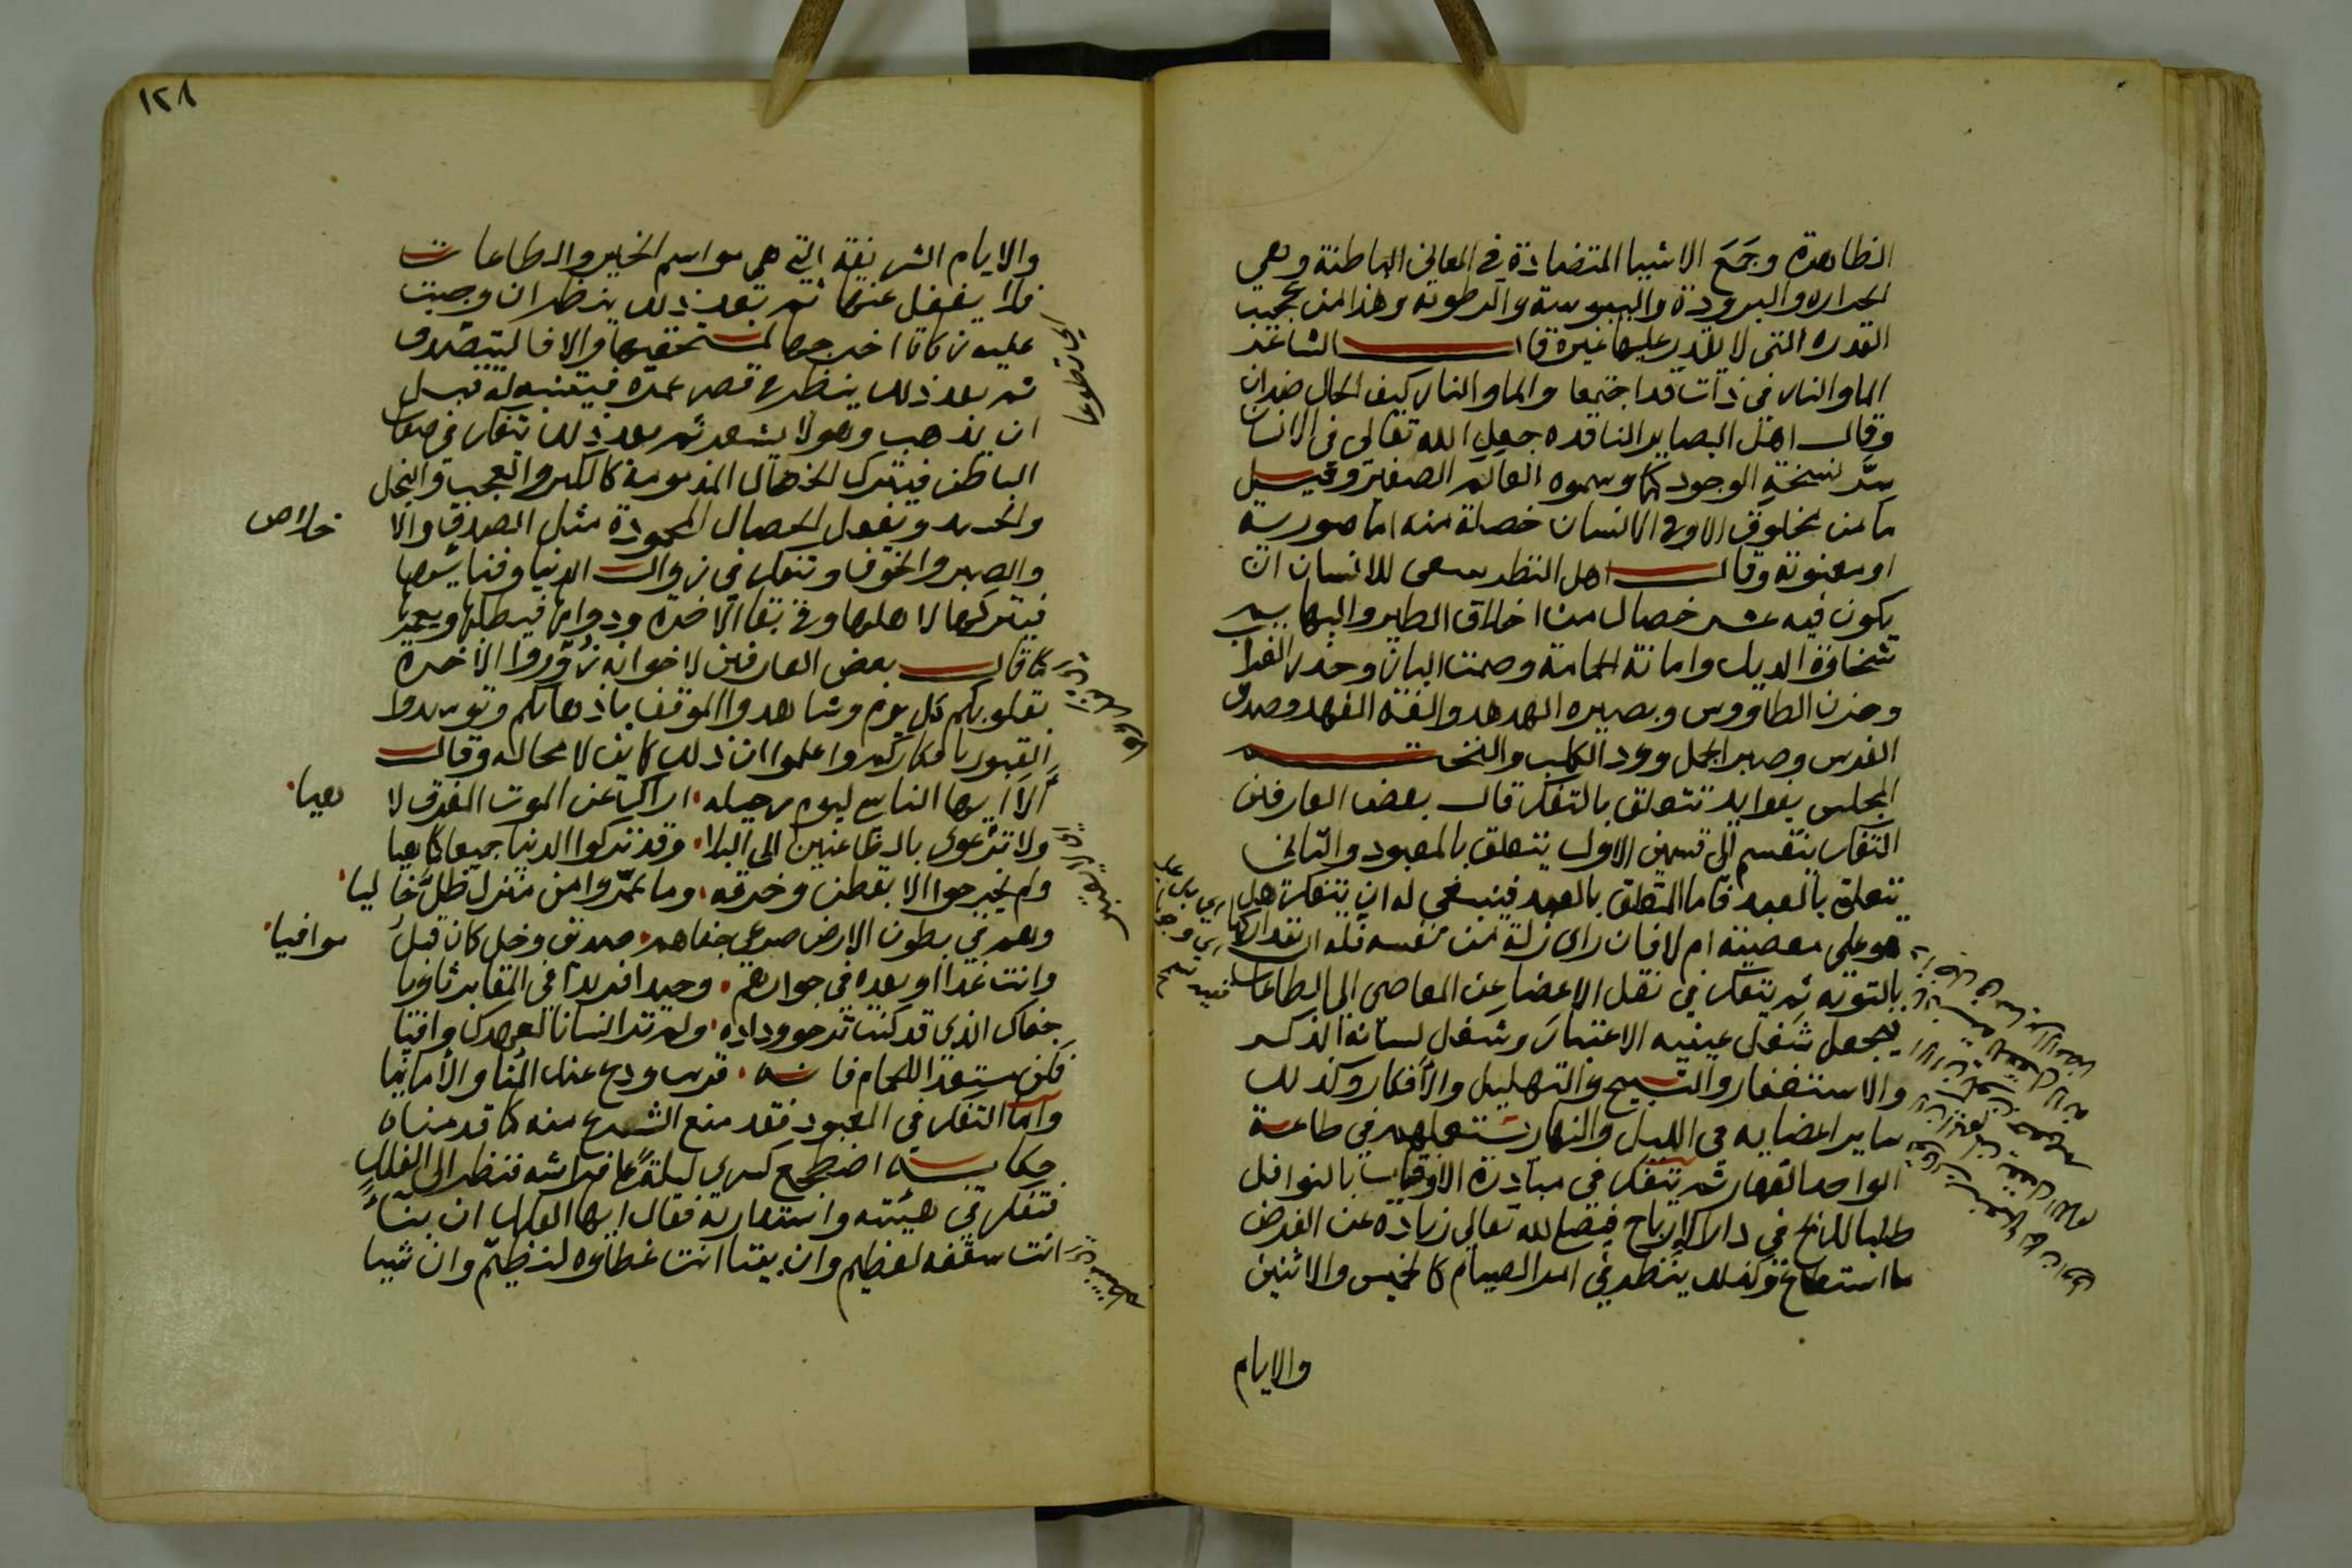 الظاهرة وجَمَع الاشيا المتضادة في المعاني الباطنة وهي
الحراره والبرودة واليبوسة والرطوبه وهذا من عجيب
القدره التي لا يقدر عليها غيره قال الشاعر
الما والنار في ذات قد اجتمعا والما والنار كيف الحال ضدان
وقال اهل البصاير الناقده جعل الله تعالى في الانسان
سرّ نسخة الوجود كلها وسموه العالم الصغير وقيل
ما من مخلوق الا وفي الانسان خصلة منه اما صورية
او معنوية وقال اهل النظر ينبغي للانسان ان
يكون فيه عشر خصال من اخلاق الطير والبهايم
سخاوة الديك وامانة الحمامة وصمت الباز وحذر الغراب
وحزن الطاووس وبصيره الهدهد والفة الفهد وصدق
الفرس وصبر الجمل وود الكلب والنختم
المجلس بفوايد تتعلق بالتفكر قال بعض العارفين
التفكر ينقسم الى قسمين الاول يتعلق بالمعبود والثاني
يتعلق بالعبد فاما المتعلق بالعبد فينبغي له ان يتفكر هل
هو على معصية ام لا فان راى زلة من نفسه فله ان يتداركها
بالتوبه ثم يتفكر في نقل الاعضا عن المعاصي الى الطاعات
فيجعل شغل عينيه الاعتبار وشغل لسانه الذكر
والاستغفار والتسبيح والتهليل والافكار وكذلك
ساير اعضايه في الليل والنهار يستعملهم في طاعة
الواحد القهار ثم يتفكر في مبادرة الاوقات بالنوافل
طلبا للربح في دار الارباح فيصل لله تعالى زيادة عن الفرض
ما استطاع وكذلك ينظر في امر الصيام كالخميس والاثنين
والايام
١٢٨
والايام الشريفة التي هي مواسم الخير والطاعات
فلا يغفل عنها ثم بعد ذلك ينظر ان وجبت
عليه زكاة اخرجها لمستحقيها والا فاليتصدق
اي تطوعا
ثم بعد ذلك ينظر في قصر عمره فيتنبه له قبل
ان يذهب وهو لا يشعر ثم بعد ذلك يتفكر في صفات
الباطن فيترك الخصال المذمومة كالكبر والعجب والبخل
والحسد ويفعل الخصال المحمودة مثل الصدق والا
خلاص
والصبر والخوف ويتفكر في زوال الدنيا وفنايها
فيتركها لاهلها وفي بقا الاخره ودوامها فيطلبها ويعمرها
كما قال بعض العارفين لاخوانه زُوّروا الاخرة
بقلوبكم كل يوم وشاهدوا الموقف باذهانكم وتوسدوا
القبور بافكاركم واعلموا ان ذلك كاين لا محاله وقال
أَلا ايها الناسي ليوم رحيله اراك عن الموت المفرق لا
هيا
ولا ترعوي بالظاعنين الى البلا وقد تركوا الدنيا جميعا كما هيا
ولم يخرجوا الا بقطن وخرقه وما عمّروا من منزل ظلّ خا
ليا
وهم في بطون الارض صرعى جفاهم صديق وخل كان قبلُ
موافيا
وانت غدا او بعده في جوارهم وحيدا فريدا في المقابر ثاويا
جفاك الذي قد كنت ترجو وداده ولم تر انسانا لعهدك وافيا
فكن مستعدا للحمام فانه قريب ودع عنك المنا والأمانيا
وأما التفكر في المعبود فقد منع الشرع منه كما قدمناه
حكاية اضطجع كسرى ليلةً على فراشه فنظر الى الفلك
فتفكر في هيئته واستدارته فقال ايها الفلك ان بناءً
انت سقفه لعظيم وان بيتا انت غطاوه لنظيم وان شيا